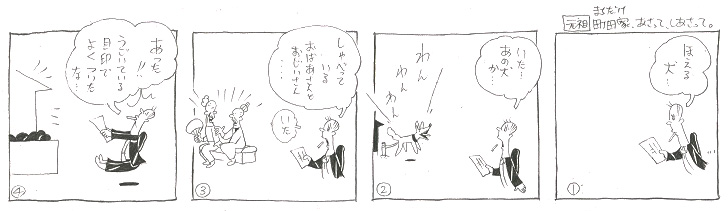 まちだけ
元祖 町田家、あさって、しあさって。
ほえる
犬…
①
いた…
あの犬
か…
わん
わん
わん
②
しゃべって
…いる
おばあさんと
おじいさん
……
いた
③
あった
!!
うごいている
目印で
よくついた
な…
④